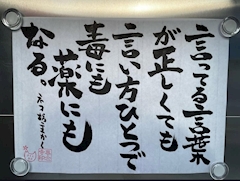 言ってる言葉
が正しくても
言い方ひとつで
毒にも薬にも
なる。